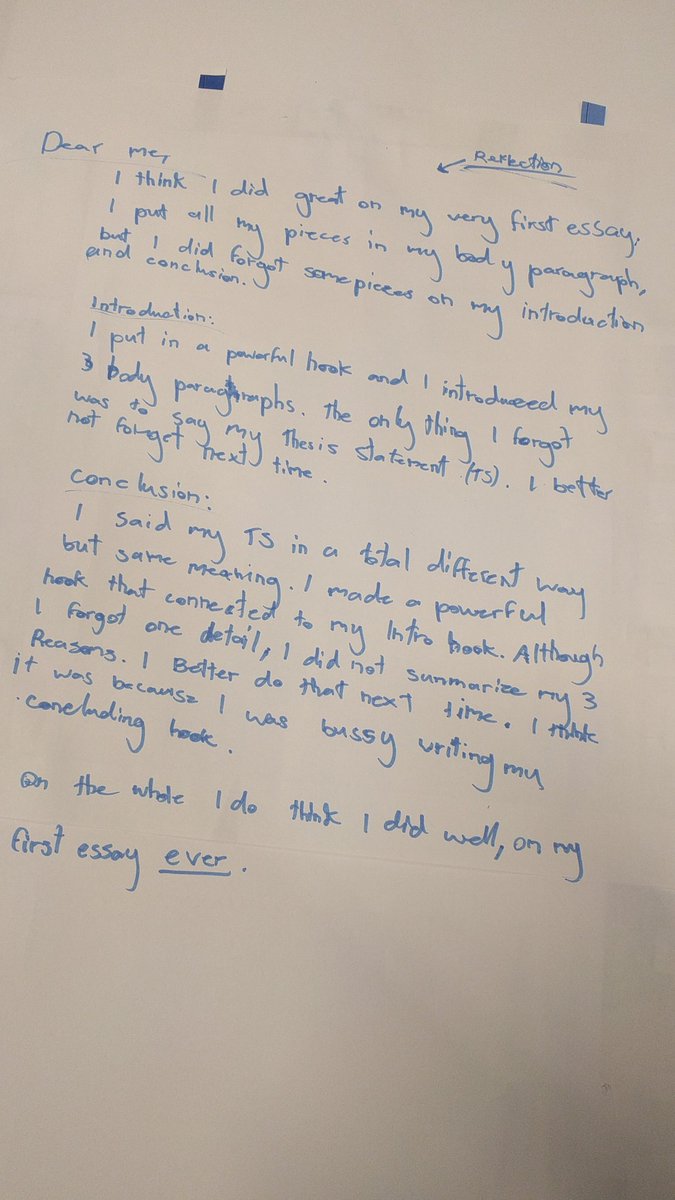 Dear me,
Reflection
I think I did great on my very first essay.
I put all my pieces in my body paragraph,
but I did forgot some pieces on my introduction
and conclusion.
Introduction:
I put in a powerful hook and I introduced my
3 body paragraphs. the only thing I forgot
was to say my Thesis statement (TS). I better
not forget next time.
Conclusion:
I said my TS in a total different way
but same meaning. I made a powerful
hook that connected to my Intro hook. Although
I forgot one detail, I did not summarize my 3
Reasons. I Better do that next time. I think
it was because I was bussy writing my
concluding hook.
On the whole I do think I did well, on my
first essay ever.